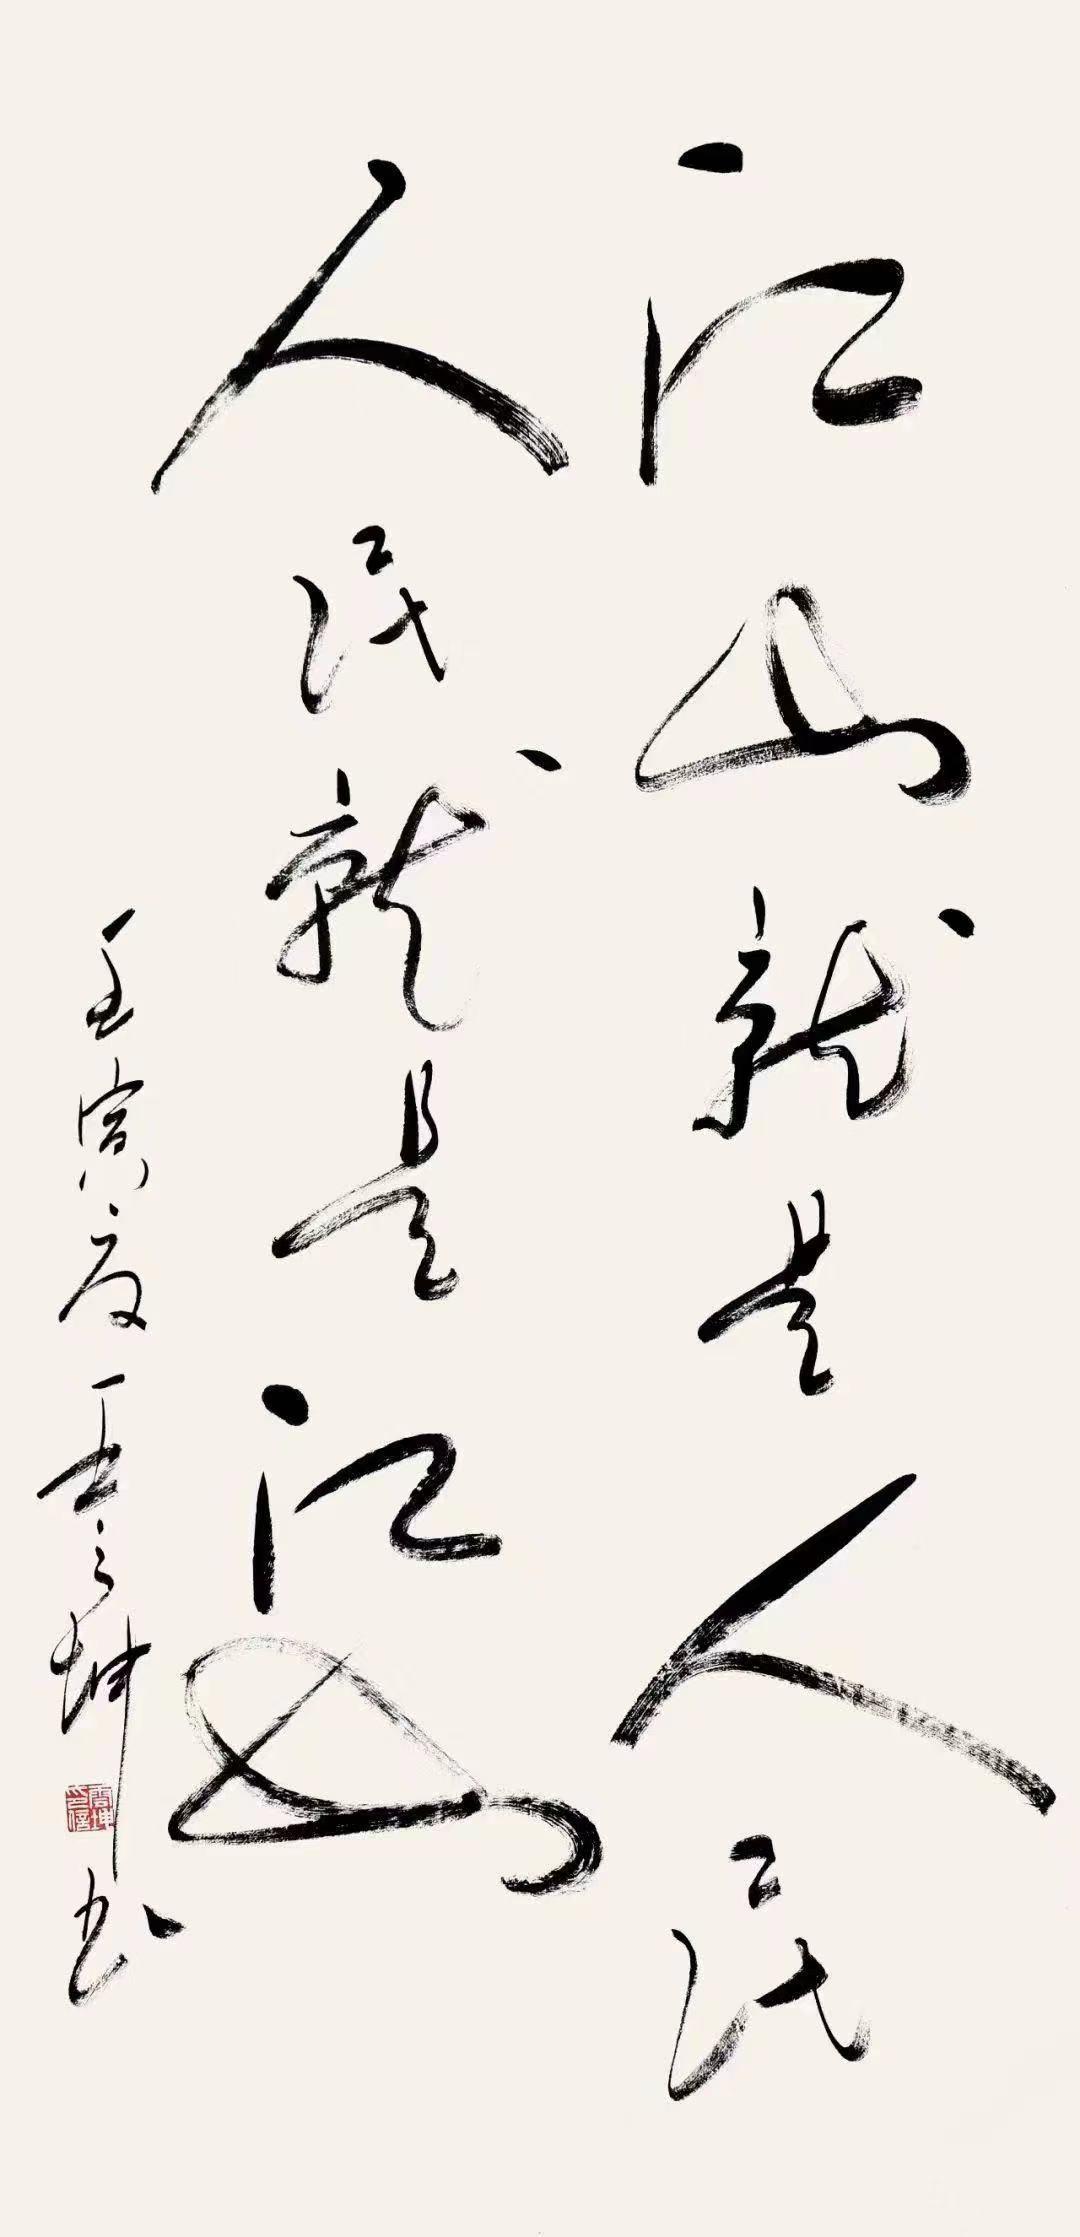 江山就是人民
人民就是江山
壬寅夏王云坤书
雲坤印信